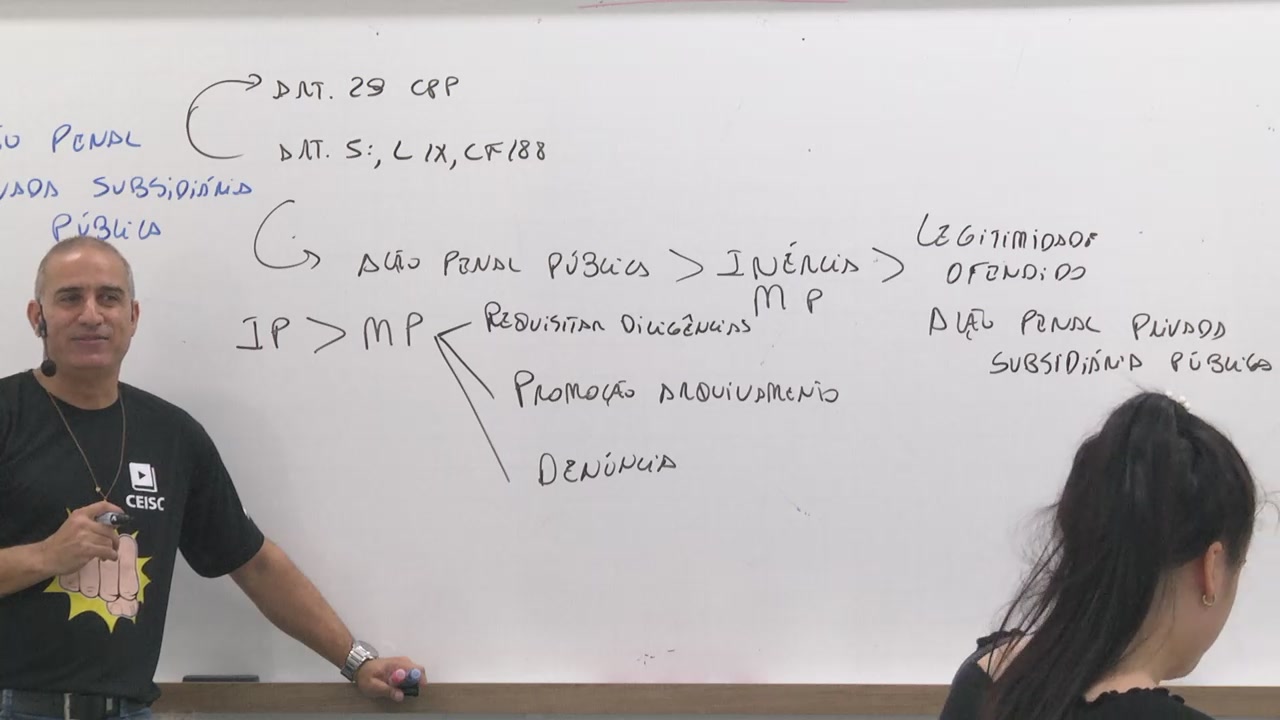 ÃO PENAL
VADA SUBSIDIÁRIA
PÚBLICA
ART. 29 CPP
ART. 5º, LIX, CF/88
AÇÃO PENAL PÚBLICA > INÉRCIA > LEGITIMIDADE
MP OFENDIDO
IP > MP REQUISITAR DILIGÊNCIAS
AÇÃO PENAL PRIVADA
SUBSIDIÁRIA PÚBLICA
PROMOÇÃO ARQUIVAMENTO
DENÚNCIA
CEISC